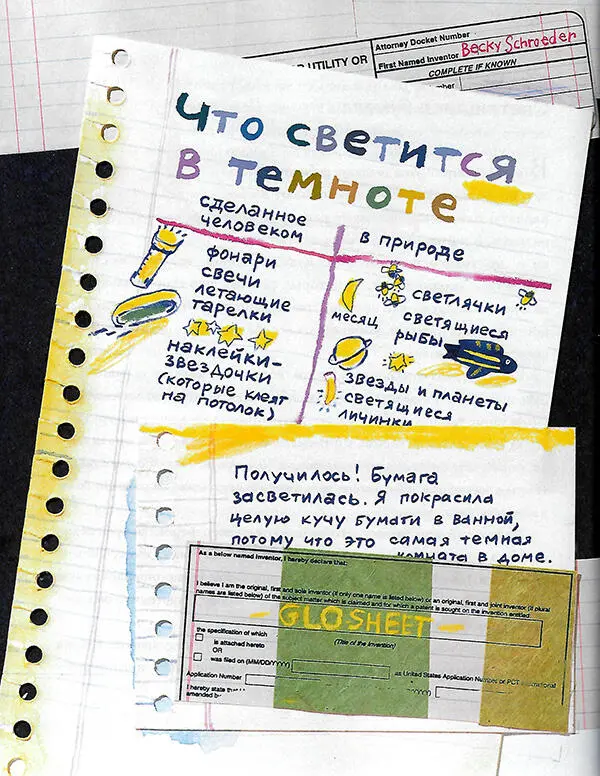 UTILITY OR
Attorney Docket Number
First Named Inventor Becky Schroeder
COMPLETE IF KNOWN
Что светится
в темноте
сделанное
человеком
фонари
свечи
летающие
тарелки
наклейки-
звездочки
(которые клеят
на потолок)
в природе
светлячки
месяц
светящиеся
рыбы
звезды и планеты
светящиеся
личинки
Получилось! Бумага
засветилась. Я покрасила
целую кучу бумаги в ванной,
потому что это самая темная
комната в доме.
As a below named Inventor, I hereby declare that:
I believe I am the original, first and sole inventor (if only one name is listed below) or an original, first and joint inventor (if plural
names are listed below) of the subject matter which is claimed and for which a patent is sought on the invention entitled:
- GLO SHEET -
the specification of which
(Title of the Invention)
is attached hereto
OR
was filed on (MM/DD/YYYY)
as United States Application Number or PCT International
Application Number
I hereby state
amended by